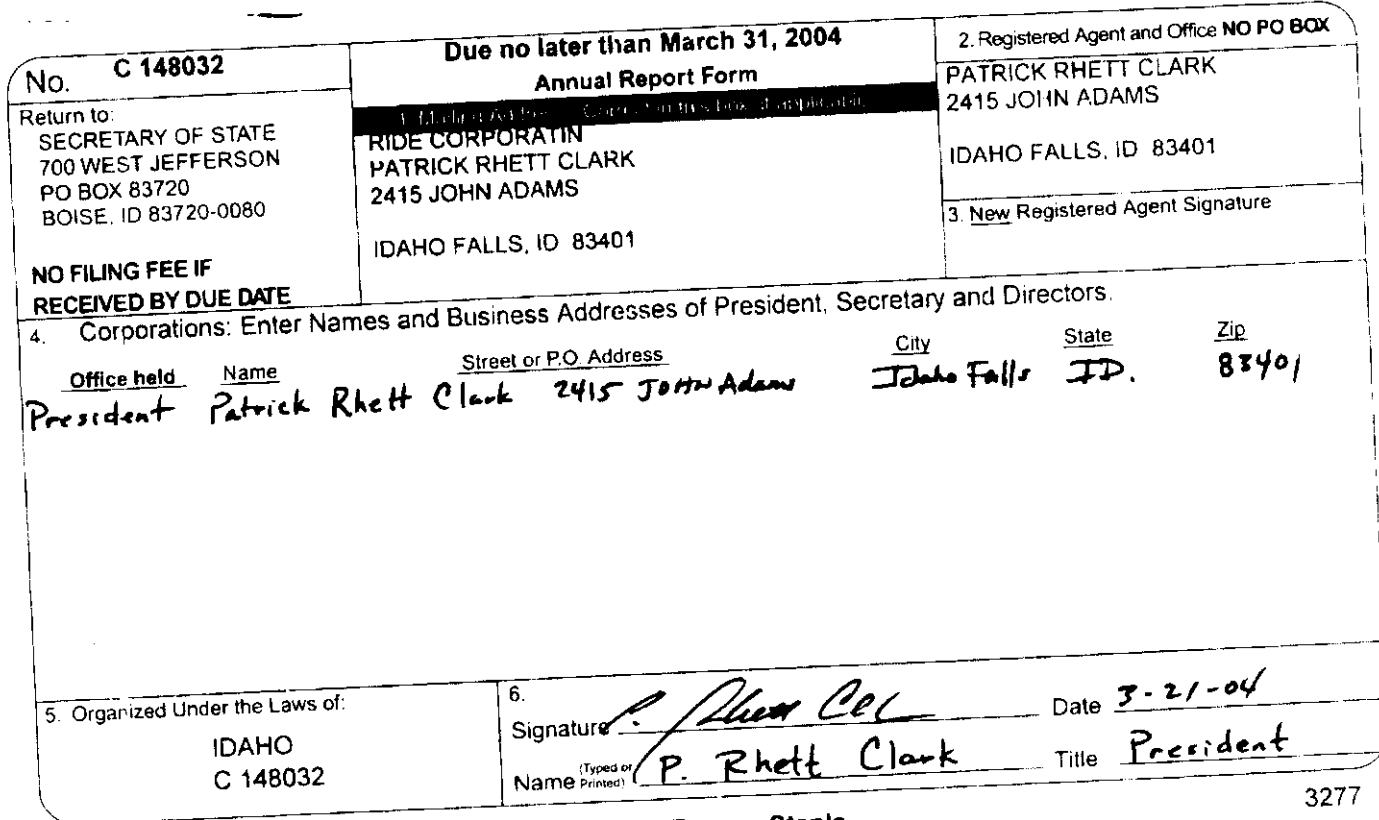 No. C 148032
Return to:
SECRETARY OF STATE
700 WEST JEFFERSON
PO BOX 83720
BOISE, ID 83720-0080
NO FILING FEE IF
RECEIVED BY DUE DATE
Due no later than March 31, 2004
Annual Report Form
RIDE CORPORATIN
PATRICK RHETT CLARK
2415 JOHN ADAMS
IDAHO FALLS, ID 83401
2. Registered Agent and Office NO PO BOX
PATRICK RHETT CLARK
2415 JOHN ADAMS
IDAHO FALLS, ID 83401
3. New Registered Agent Signature
4. Corporations: Enter Names and Business Addresses of President, Secretary and Directors.
Office held Name Street or P.O. Address City State Zip
President Patrick Rhett Clark 2415 JOHN Adams Idaho Falls ID. 83401
5. Organized Under the Laws of:
IDAHO
C 148032
6.
Signature Date 3-21-04
Name (Typed or Printed) P. Rhett Clark Title President
3277